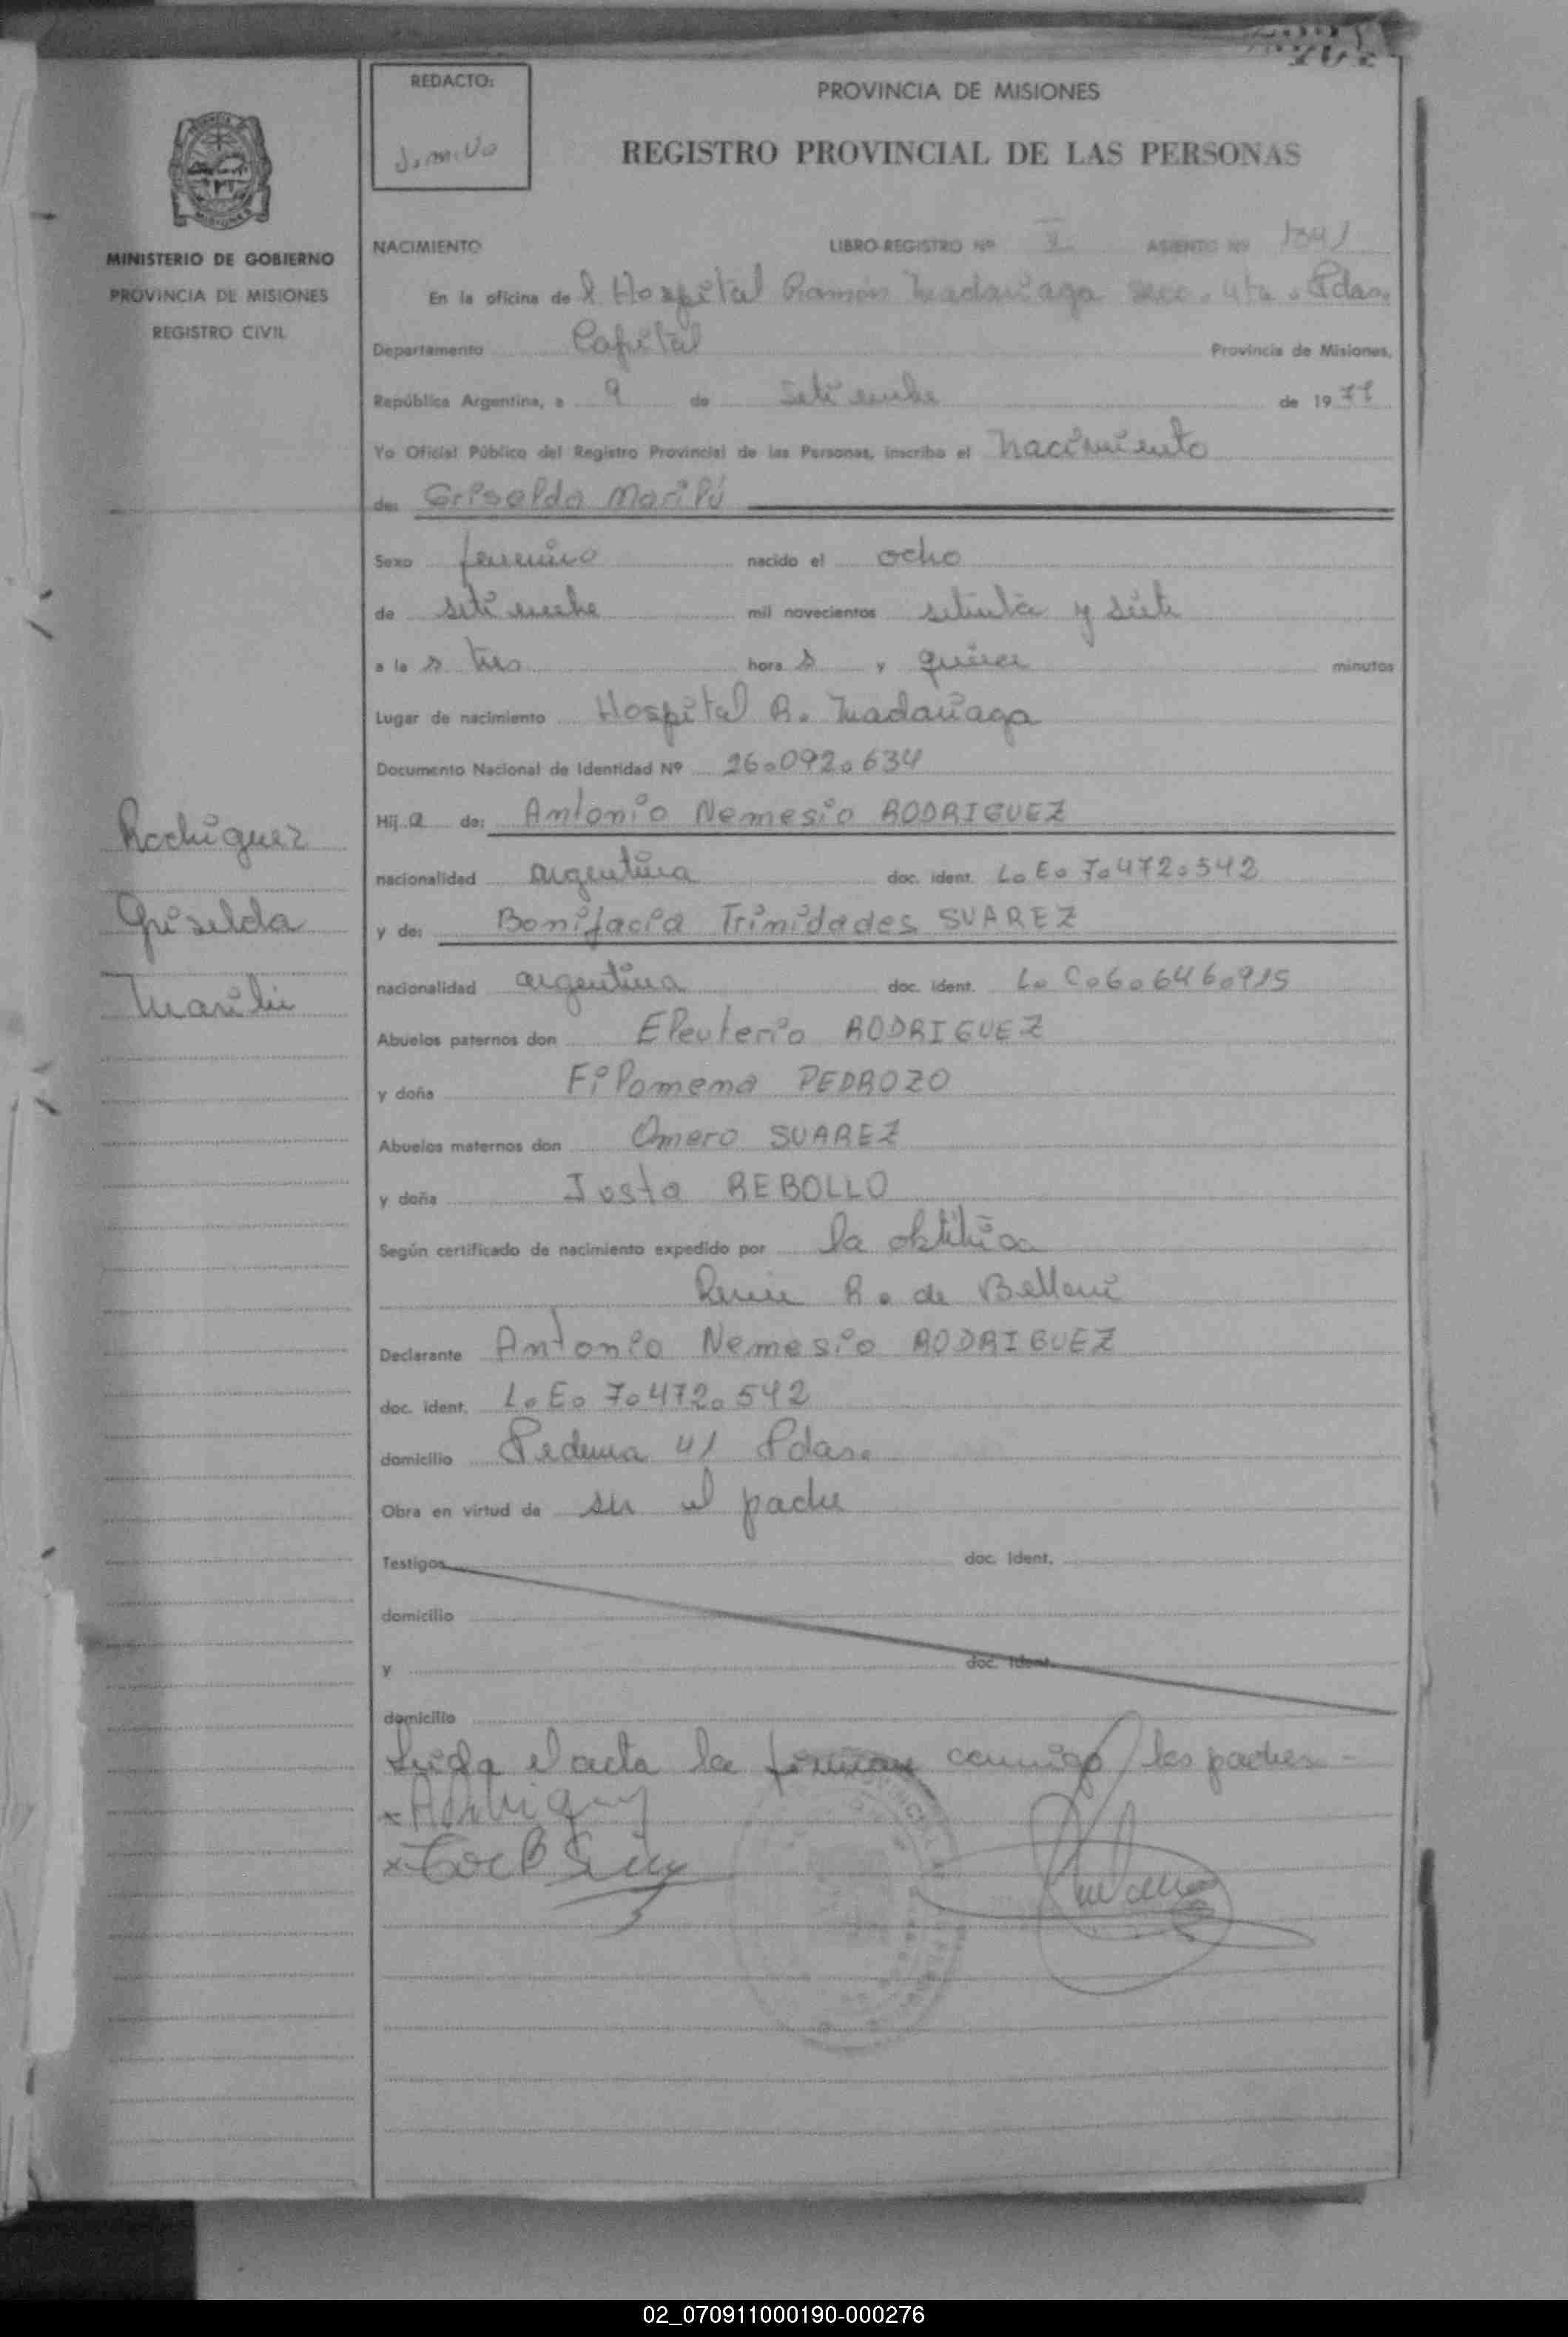 REDACTO:
PROVINCIA DE MISIONES
REGISTRO PROVINCIAL DE LAS PERSONAS
MINISTERIO DE GOBIERNO
PROVINCIA DE MISIONES
REGISTRO CIVIL
NACIMIENTO LIBRO-REGISTRO Nº V ASIENTO Nº 1341
En la oficina del Hospital Ramón Madariaga secc. 4ta. Pdas.
Departamento Capital Provincia de Misiones,
República Argentina, a 9 de setiembre de 1977
Yo Oficial Público del Registro Provincial de las Personas, inscribo el nacimiento
de: Griselda Marilú
Sexo femenino nacido el ocho
de setiembre mil novecientos setenta y siete
a las tres horas y quince minutos
Lugar de nacimiento Hospital R. Madariaga
Documento Nacional de Identidad Nº 26.092.634
Hija de: Antonio Nemesio RODRIGUEZ
nacionalidad argentina doc. ident. L.E. 7.472.542
y de: Bonifacia Trinidades SUAREZ
nacionalidad argentina doc. ident. L.C. 6.646.915
Abuelos paternos don Eleuterio RODRIGUEZ
y doña Filomena PEDROZO
Abuelos maternos don Omero SUAREZ
y doña Justa REBOLLO
Según certificado de nacimiento expedido por la obstétrica
R. de Belloni
Declarante Antonio Nemesio RODRIGUEZ
doc. ident. L.E. 7.472.542
domicilio 41 Pdas.
Obra en virtud de ser el padre
Testigos doc. ident.
domicilio
y doc. ident.
domicilio
Leida el acta la firman conmigo los padres -
Rodriguez
Griselda
Marilú
02_070911000190-000276